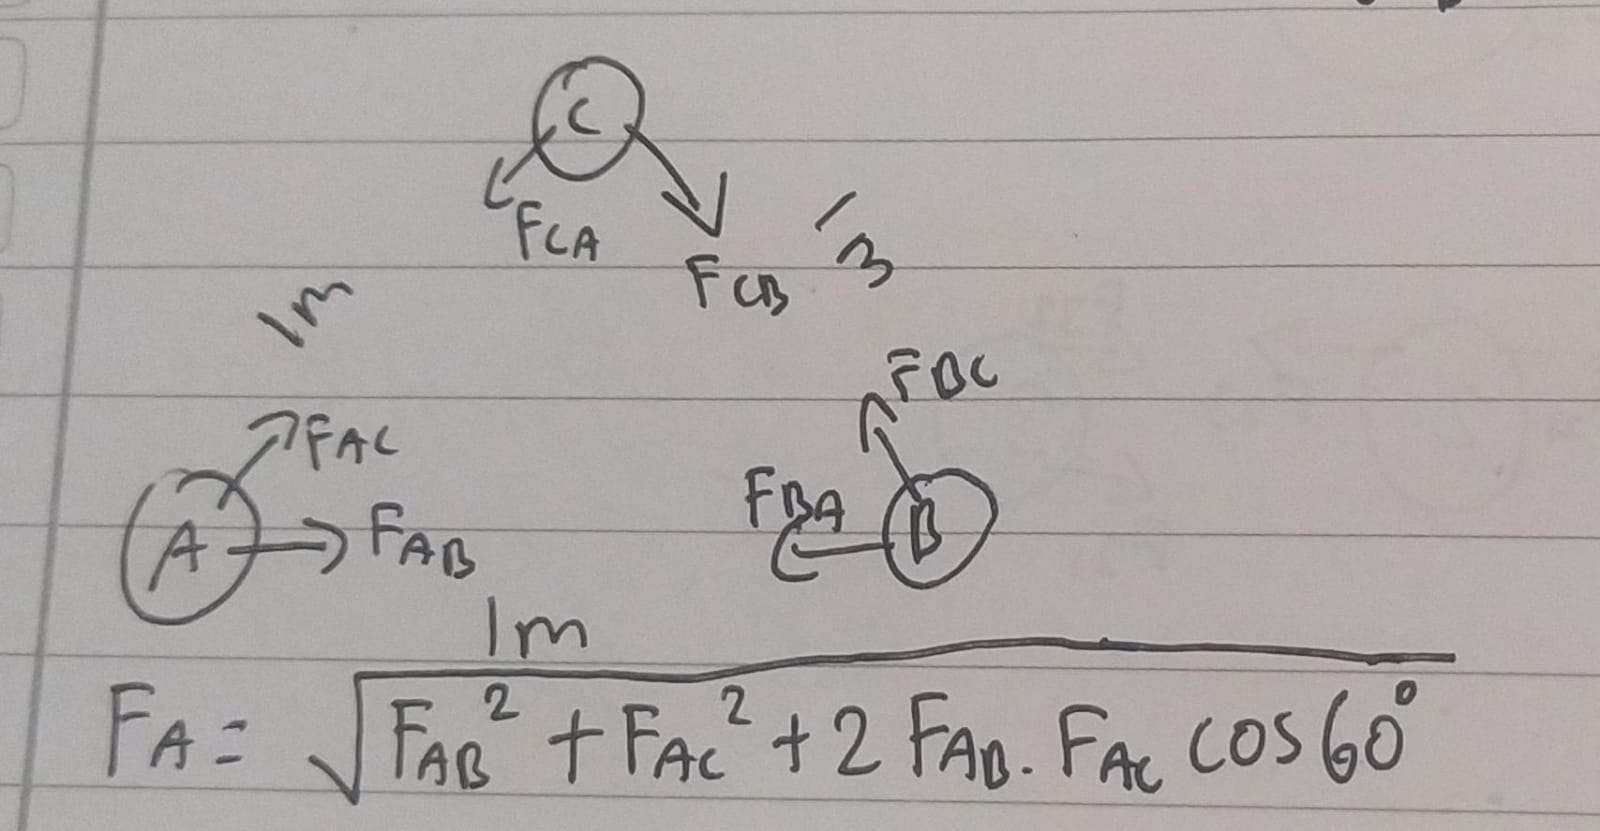 C
FCA
FCB
1m
1m
FAC
FBC
A
FAB
FBA
B
1m
FA = √FAB² + FAC² + 2 FAB . FAC cos 60°